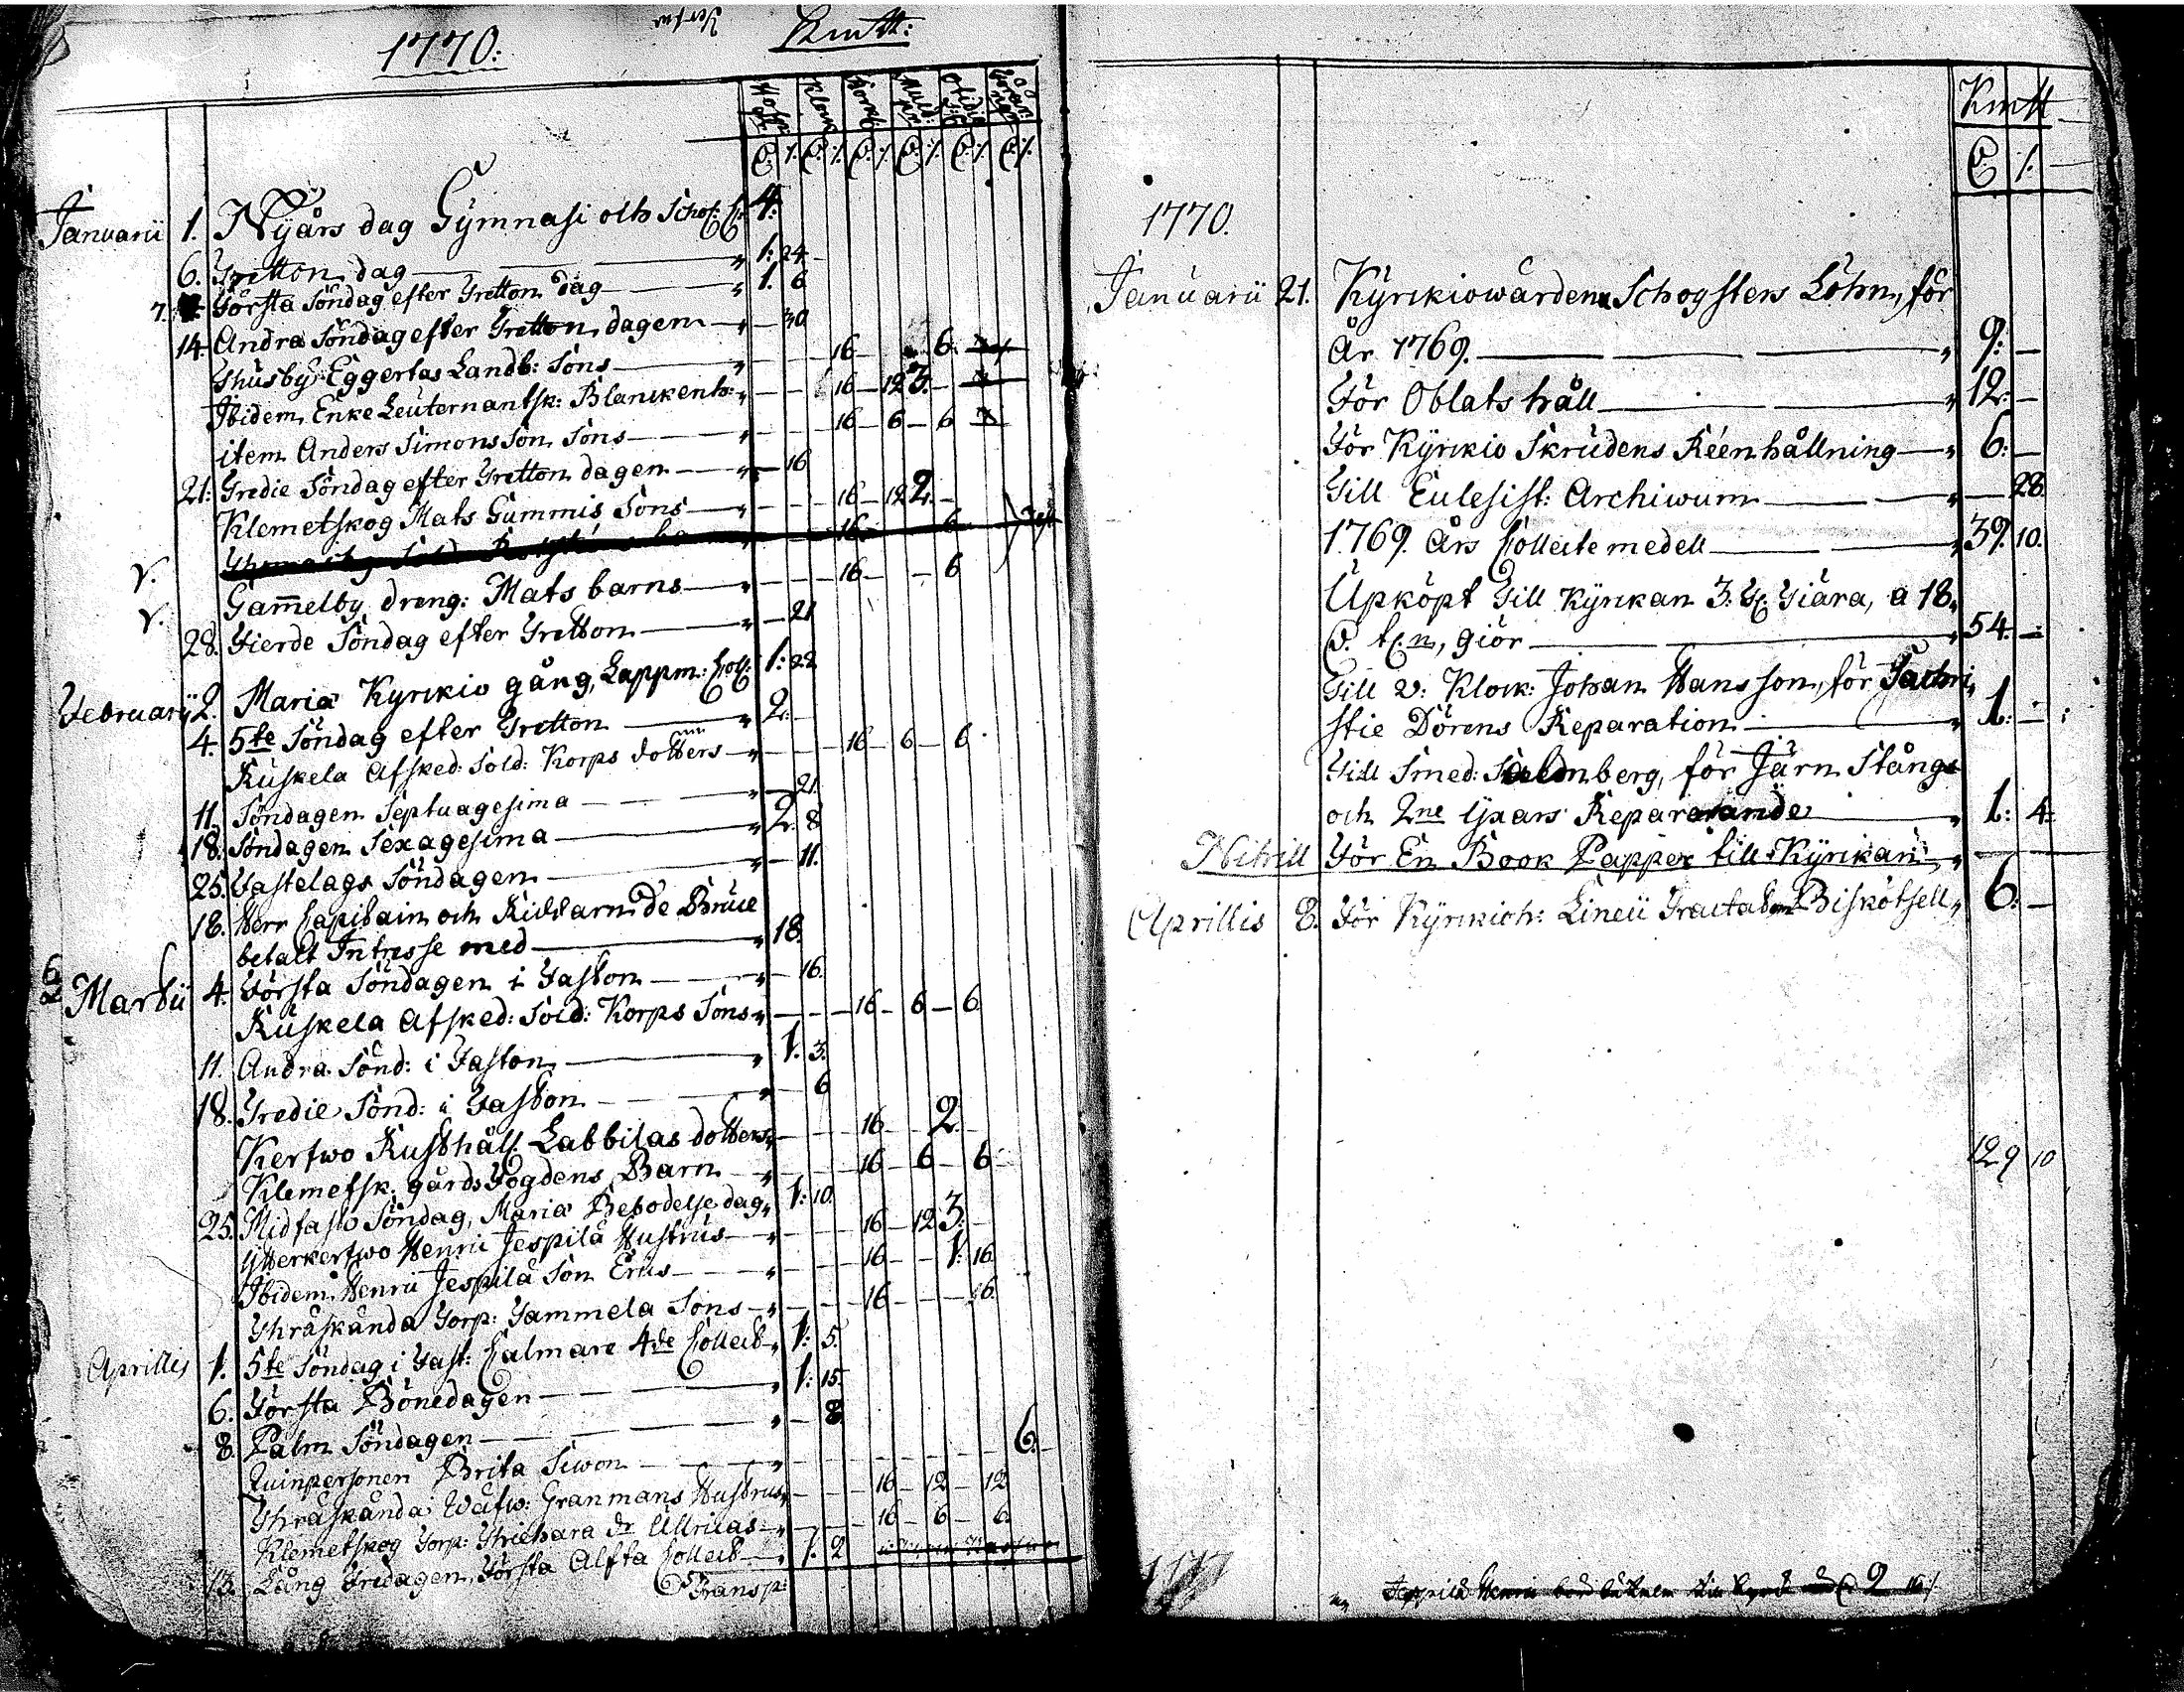 1770:
Kmtt:
Januarii 1. Nyårs dag Gymnasi och Schol: C: 4:
6. Tretton dag 1: 24.
7. Första Söndag efter Tretton dag 1. 6
14. Andra Söndag efter Tretton dagen 30
Thusby Eggertas Landb: Sons 16 6
Ibidem Enke Leuternantsk: Blanckenh: 16 12 3.
item Anders Simons Son Sons 16 6 6
21. Tredie Söndag efter Tretton dagen 16
Klemetskog Mats Gummis Sons 16 12 2.
16 6
Gammelby dreng: Mats barns 16 6
28. Fierde Söndag efter Tretton 21
Februarii 2. Mariæ Kyrckio gång, Lappm: Coll: 1: 22
4. 5te Söndag efter Tretton 2.
Ruskela Afsked: Sold: Korps dotters 16 6 6
11. Söndagen Septuagesima 21.
18. Söndagen Sexagesima 2. 8
25. Fastelags Söndagen 11.
18. Herr Capitain och Riddarn De Bruce
betalt Intresse med 18.
Martii 4. Första Söndagen i Faston 16.
Ruskela Afsked: Sold: Korps Sons 16 6 6
11. Andra Sönd: i Faston 1. 3.
18. Tredie Sönd: i Faston 6
Kertwo Rusthåll: Labbilas dotters 16 2.
Klemetsk: gårds Fogdens Barn 16 6 6
25. Midfasto Söndag, Mariæ Bebodelse dag 1: 10.
Ytterkertwo Henric Jespilä Hustrus 16 12 3.
Ibidem Henric Jespilä Son Erics 16 1: 16
Thräskända Torp: Tammela Sons 16 16.
Aprillis 1. 5te Söndag i Fast: Calmare 4de Collect 1: 5.
6. Första Bönedagen 1: 15.
8. Palm Söndagen 8
Quinpersonen Brita Siwon 6.
Thräskända Wäfw: Granmans Hustrus 16 12 12
Klemetskog Torp: dr Ullricas 16 6 6
13. Lång Fredagen, Första Alfta Collect 1. 2
Transp:
Kmtt
1770.
Januarii 21. Kyrckiowärden Schogsters Löhn, för
År 1769. 9:
För Oblats håll 12.
För Kyrckio Skrudens Réenhållning 6:
Till Archiwum 28.
1769. Års Collecte medell 39. 10.
Upköpt Till Kyrckan 3. Tiära, a 18.
giör 54.
Till v: Klock: Johan Hansson, för Sachri,
stie Dörens Reparation 1:
Till Smed: för Järn Stångs
och 2ne Reparerande 1: 4
För En Book Papper till Kyrckan
Aprillis 8. För Kyrckioh: 6:
129 10